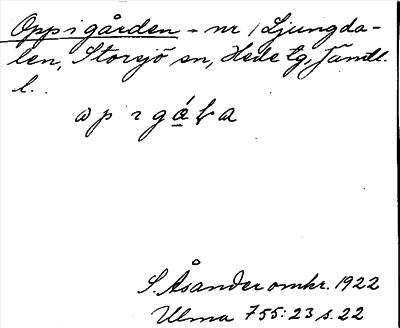 Opp i gården - nr 1 Ljungda-
len, Storsjö sn, Hede tg, Jämtl.
l.
S. Åsander omkr. 1922
Ulma 755:23 s. 22